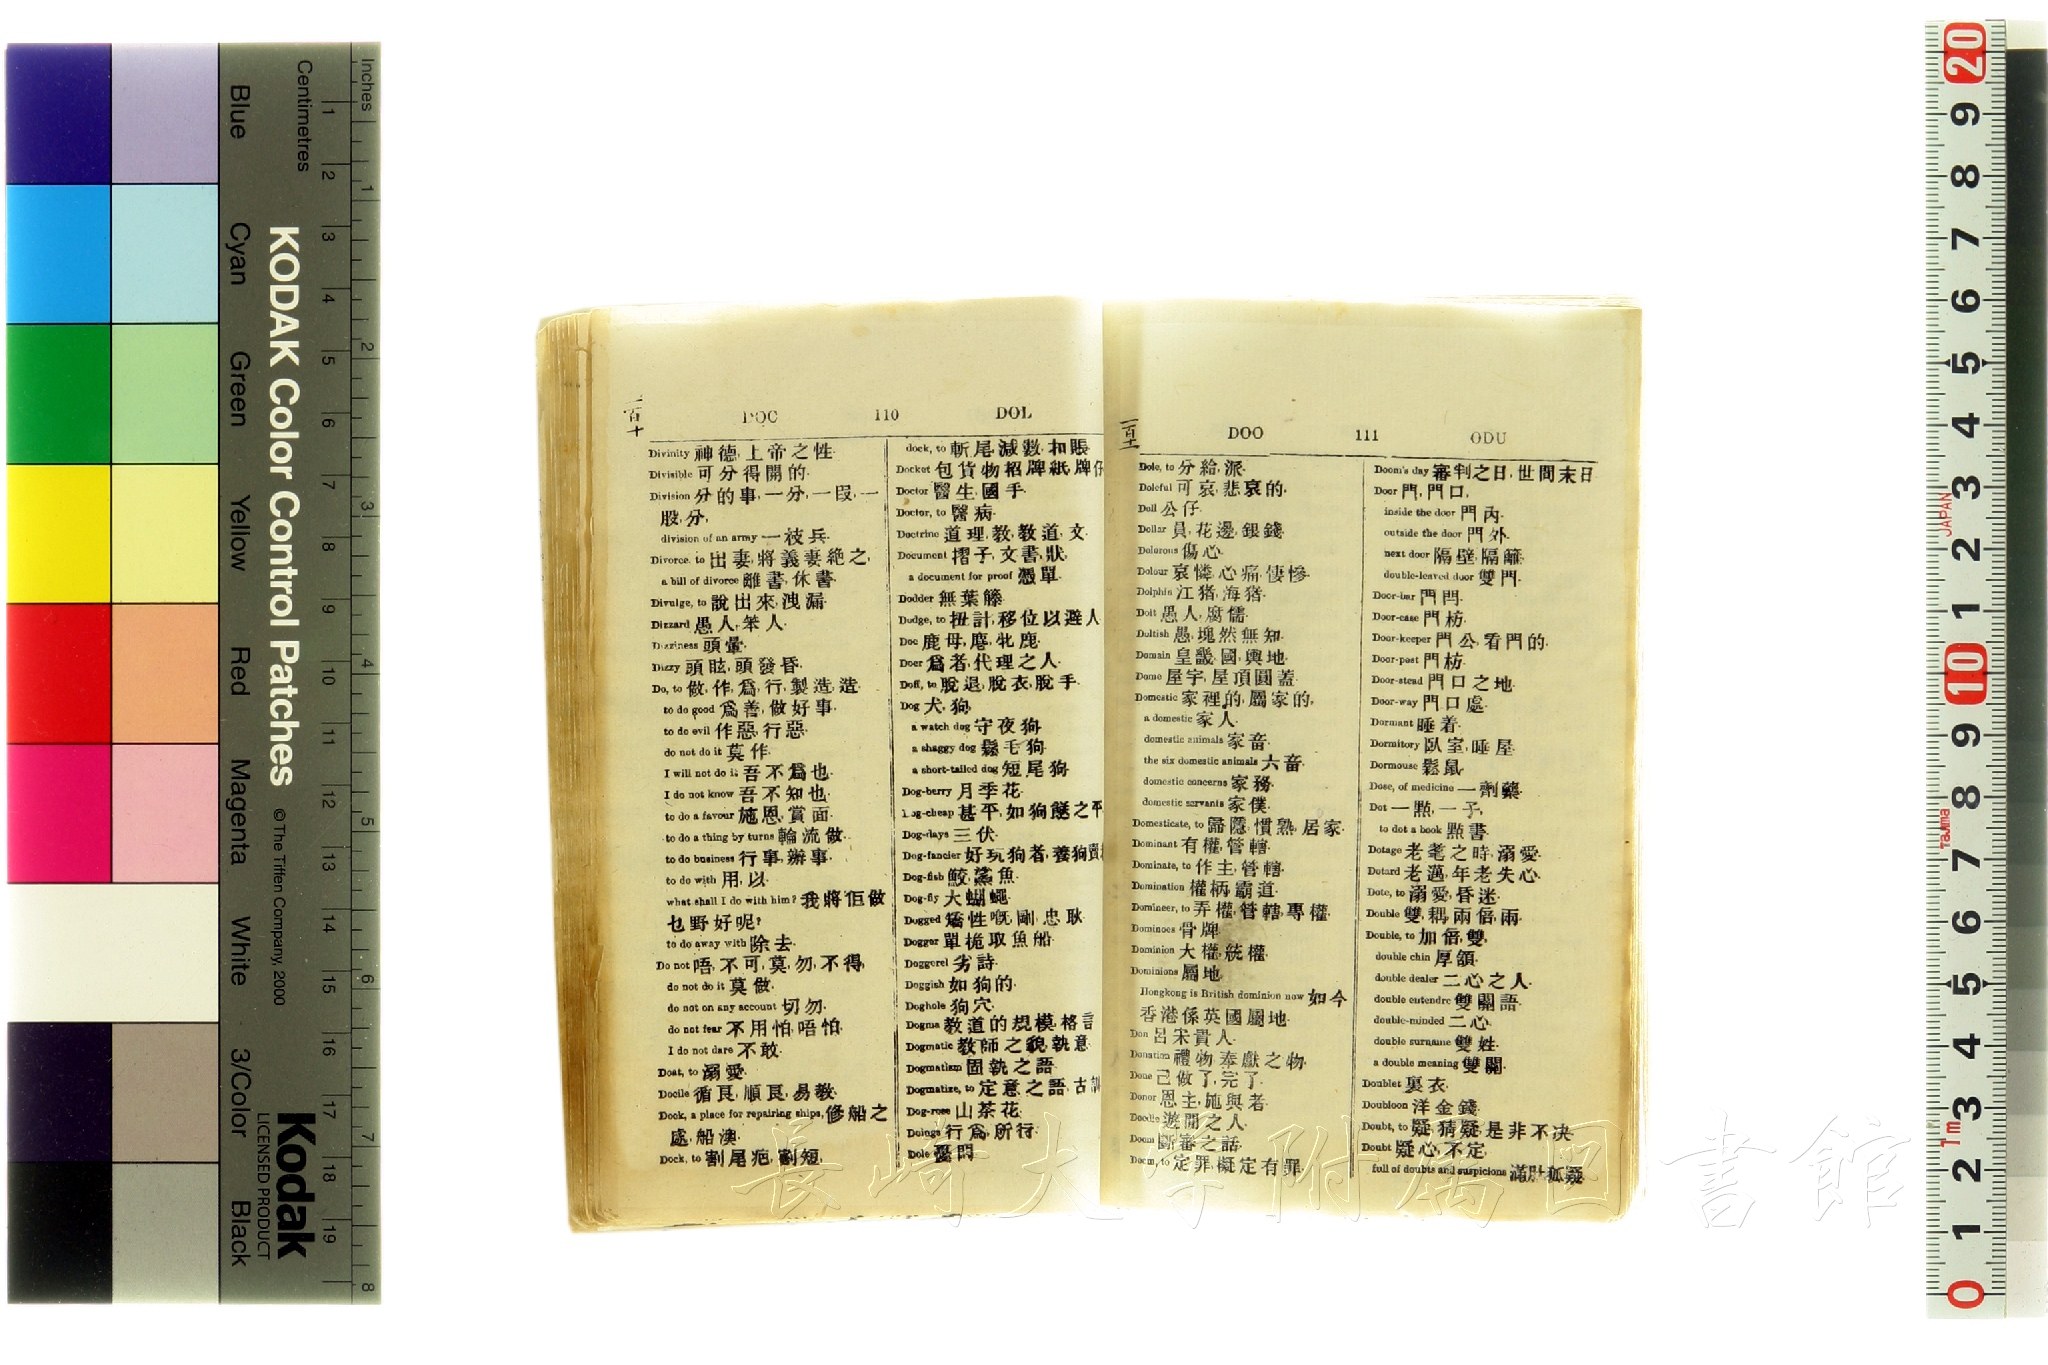 Blue
Cyan
Green
Yellow
Red
Magenta
White
3/Color
Black
Centimetres
KODAK Color Control Patches
© The Tiffen Company, 2000
Kodak
LICENSED PRODUCT
Inches
一百十
DOC 110 DOL
Divinity 神德,上帝之性.
Divisible 可分得開的.
Division 分的事,一分,一段,一
股,分,
division of an army 一枝兵.
Divorce, to 出妻,將義妻絶之,
a bill of divorce 離書,休書.
Divulge, to 說出來,洩漏.
Dizzard 愚人,笨人.
Dizziness 頭暈.
Dizzy 頭眩,頭發昏.
Do, to 做,作,爲,行,製造,造.
to do good 爲善,做好事.
to do evil 作惡,行惡.
do not do it 莫作.
I will not do it 吾不爲也.
I do not know 吾不知也.
to do a favour 施恩,賞面.
to do a thing by turns 輪流做.
to do business 行事,辦事.
to do with 用,以.
what shall I do with him? 我將佢做
乜野好呢?
to do away with 除去.
Do not 唔,不可,莫,勿,不得,
do not do it 莫做.
do not on any account 切勿.
do not fear 不用怕,唔怕.
I do not dare 不敢.
Doat, to 溺愛.
Docile 循良,順良,易教.
Dock, a place for repairing ships, 修船之
處,船澳.
Dock, to 割尾疤,割短,
dock, to 斬尾,減數,扣賬
Docket 包貨物招牌紙,牌仔
Doctor 醫生,國手.
Doctor, to 醫病.
Doctrine 道理,教,教道,文.
Document 摺子,文書,狀,
a document for proof 憑單.
Dodder 無葉籐
Dodge, to 扭計,移位以避人
Doe 鹿母,麀,牝鹿.
Doer 爲者,代理之人.
Doff, to 脫退,脫衣,脫手.
Dog 犬,狗,
a watch dog 守夜狗
a shaggy dog 鬆毛狗
a short-tailed dog 短尾狗
Dog-berry 月季花.
Dog-cheap 甚平,如狗餸之平
Dog-days 三伏.
Dog-fancier 好玩狗者,養狗賣
Dog-fish 鮫,鯊魚.
Dog-fly 大蝴蠅.
Dogged 矯性嘅,剛,忠耿.
Dogger 單桅取魚船.
Doggerel 劣詩.
Doggish 如狗的.
Doghole 狗穴.
Dogma 教道的規模,格言
Dogmatic 教師之貌,執意.
Dogmatism 固執之語.
Dogmatize, to 定意之語,古
Dog-rose 山茶花.
Doings 行爲,所行.
Dole 憂悶
一百十一
DOO 111 ODU
Dole, to 分給,派.
Doleful 可哀,悲哀的.
Doll 公仔.
Dollar 員,花邊,銀錢.
Dolorous 傷心.
Dolour 哀憐,心痛,悽慘.
Dolphin 江猪,海猪.
Dolt 愚人,腐儒.
Doltish 愚,塊然無知.
Domain 皇畿,國,輿地.
Dome 屋宇,屋頂圓蓋.
Domestic 家裡的,屬家的,
a domestic 家人.
domestic animals 家畜.
the six domestic animals 六畜.
domestic concerns 家務.
domestic servants 家僕.
Domesticate, to 歸隱,慣熟,居家.
Dominant 有權,管轄.
Dominate, to 作主,管轄.
Domination 權柄,霸道.
Domineer, to 弄權,管轄,專權.
Dominoes 骨牌.
Dominion 大權,統權.
Dominions 屬地.
Hongkong is British dominion now 如今
香港係英國屬地.
Don 呂宋貴人.
Donation 禮物,奉獻之物.
Done 己做了,完了.
Donor 恩主,施與者.
Doodle 遊閒之人.
Doom 斷審之話.
Doom, to 定罪,擬定有罪.
Doom's day 審判之日,世間末日
Door 門,門口,
inside the door 門內.
outside the door 門外.
next door 隔壁,隔籬.
double-leaved door 雙門.
Door-bar 門閂.
Door-case 門枋.
Door-keeper 門公,看門的.
Door-post 門枋.
Door-stead 門口之地.
Door-way 門口處.
Dormant 睡着.
Dormitory 臥室,睡屋.
Dormouse 鬆鼠.
Dose, of medicine 一劑藥.
Dot 一點,一孑,
to dot a book 點書.
Dotage 老耄之時,溺愛.
Dotard 老邁,年老失心.
Dote, to 溺愛,昏迷.
Double 雙,耦,兩倍,兩.
Double, to 加倍,雙,
double chin 厚頷.
double dealer 二心之人.
double entendre 雙關語.
double-minded 二心.
double surname 雙姓.
a double meaning 雙關.
Doublet 裏衣.
Doubloon 洋金錢.
Doubt, to 疑,猜疑,是非不决.
Doubt 疑心,不定,
full of doubts and suspicions 滿肚狐疑.
長崎大学附属図書館
JAPAN
Tajima
1m